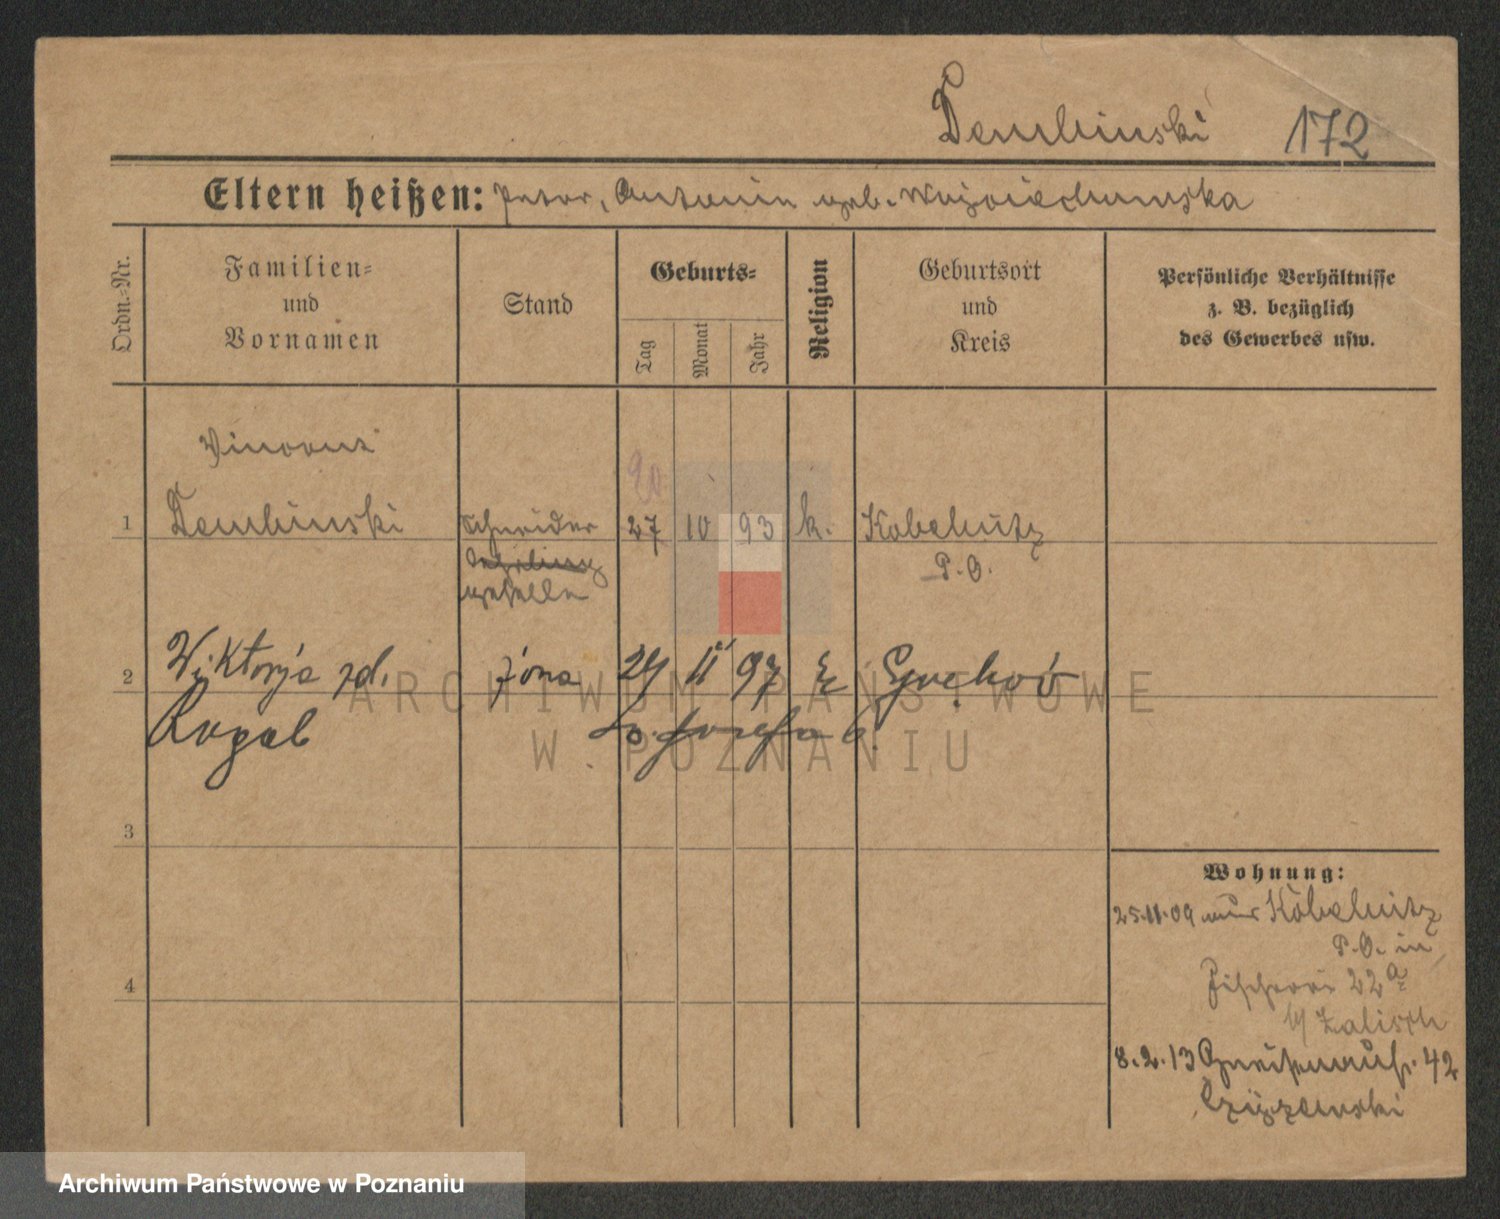 Dembinski 172
Eltern heißen: Peter, Antonie geb. Wojciechowska
Ordn.-Nr.
Familien-
und
Vornamen
Stand
Geburts-
Tag
Monat
Jahr
Religion
Geburtsort
und
Kreis
Persönliche Verhältnisse
z. B. bezüglich
des Gewerbes usw.
Vincent
20
1 Dembinski Schneider 27 10 93 k. Kobelnitz
lehrling P.O.
geselle
2 Wiktorja zd. żona 24 11 97
Rogal c. Józefa
3
4
Wohnung:
25.11.09 aus Kobelnitz
P.O. in
Fischerei 22a
b/ Zalisch
8.2.13 Gneisenaustr. 42
ARCHIWUM PAŃSTWOWE
W POZNANIU
Archiwum Państwowe w Poznaniu